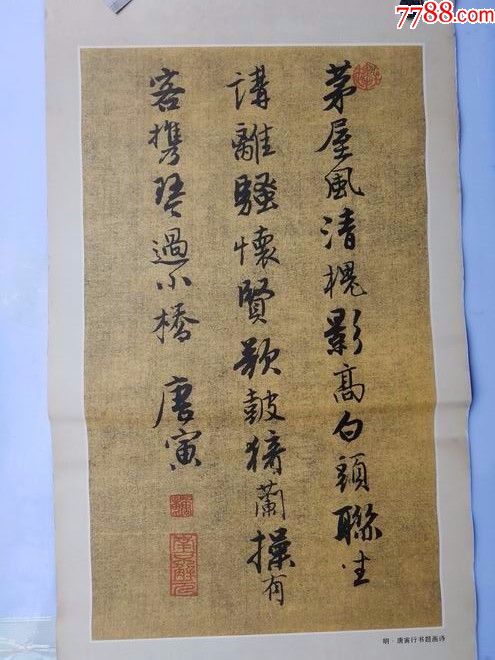 7788.com
茅屋風清槐影高白頭聯坐
講離騷懷賢欲鼓猗蘭操有
客攜琴過小橋
唐寅
明·唐寅行书题画诗